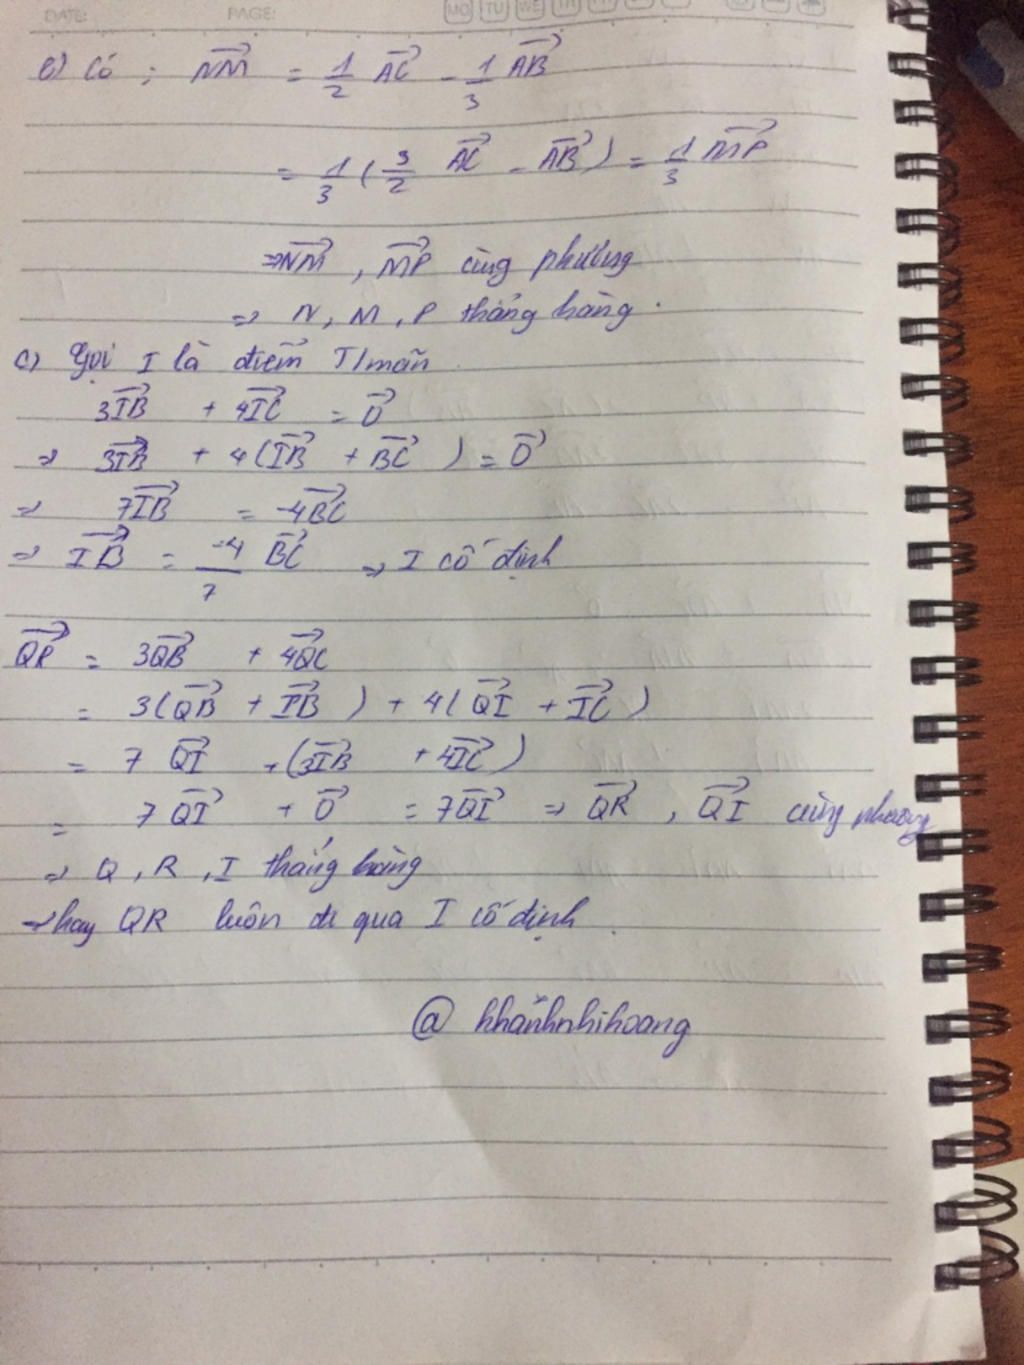 DATE: PAGE: MO TU WE TH
b) Có : NM⃗ = 1/2 AC⃗ - 1/3 AB⃗
= 1/3 ( 3/2 AC⃗ - AB⃗ ) = 1/3 MP⃗
⇒ NM⃗ , MP⃗ cùng phương
⇒ N, M, P thẳng hàng .
c) Gọi I là điểm T/mãn
3IB⃗ + 4IC⃗ = 0⃗
⇒ 3IB⃗ + 4(IB⃗ + BC⃗ ) = 0⃗
⇒ 7IB⃗ = -4BC⃗
⇒ IB⃗ = -4/7 BC⃗ ⇒ I cố định
QR⃗ = 3QB⃗ + 4QC⃗
= 3(QB⃗ + IB⃗ ) + 4( QI⃗ + IC⃗ )
= 7 QI⃗ + (3IB⃗ + 4IC⃗ )
= 7 QI⃗ + 0⃗ = 7QI⃗ ⇒ QR⃗ , QI⃗ cùng phương
⇒ Q , R , I thẳng hàng
⇒ hay QR luôn đi qua I cố định .
@ khanhnhihoang